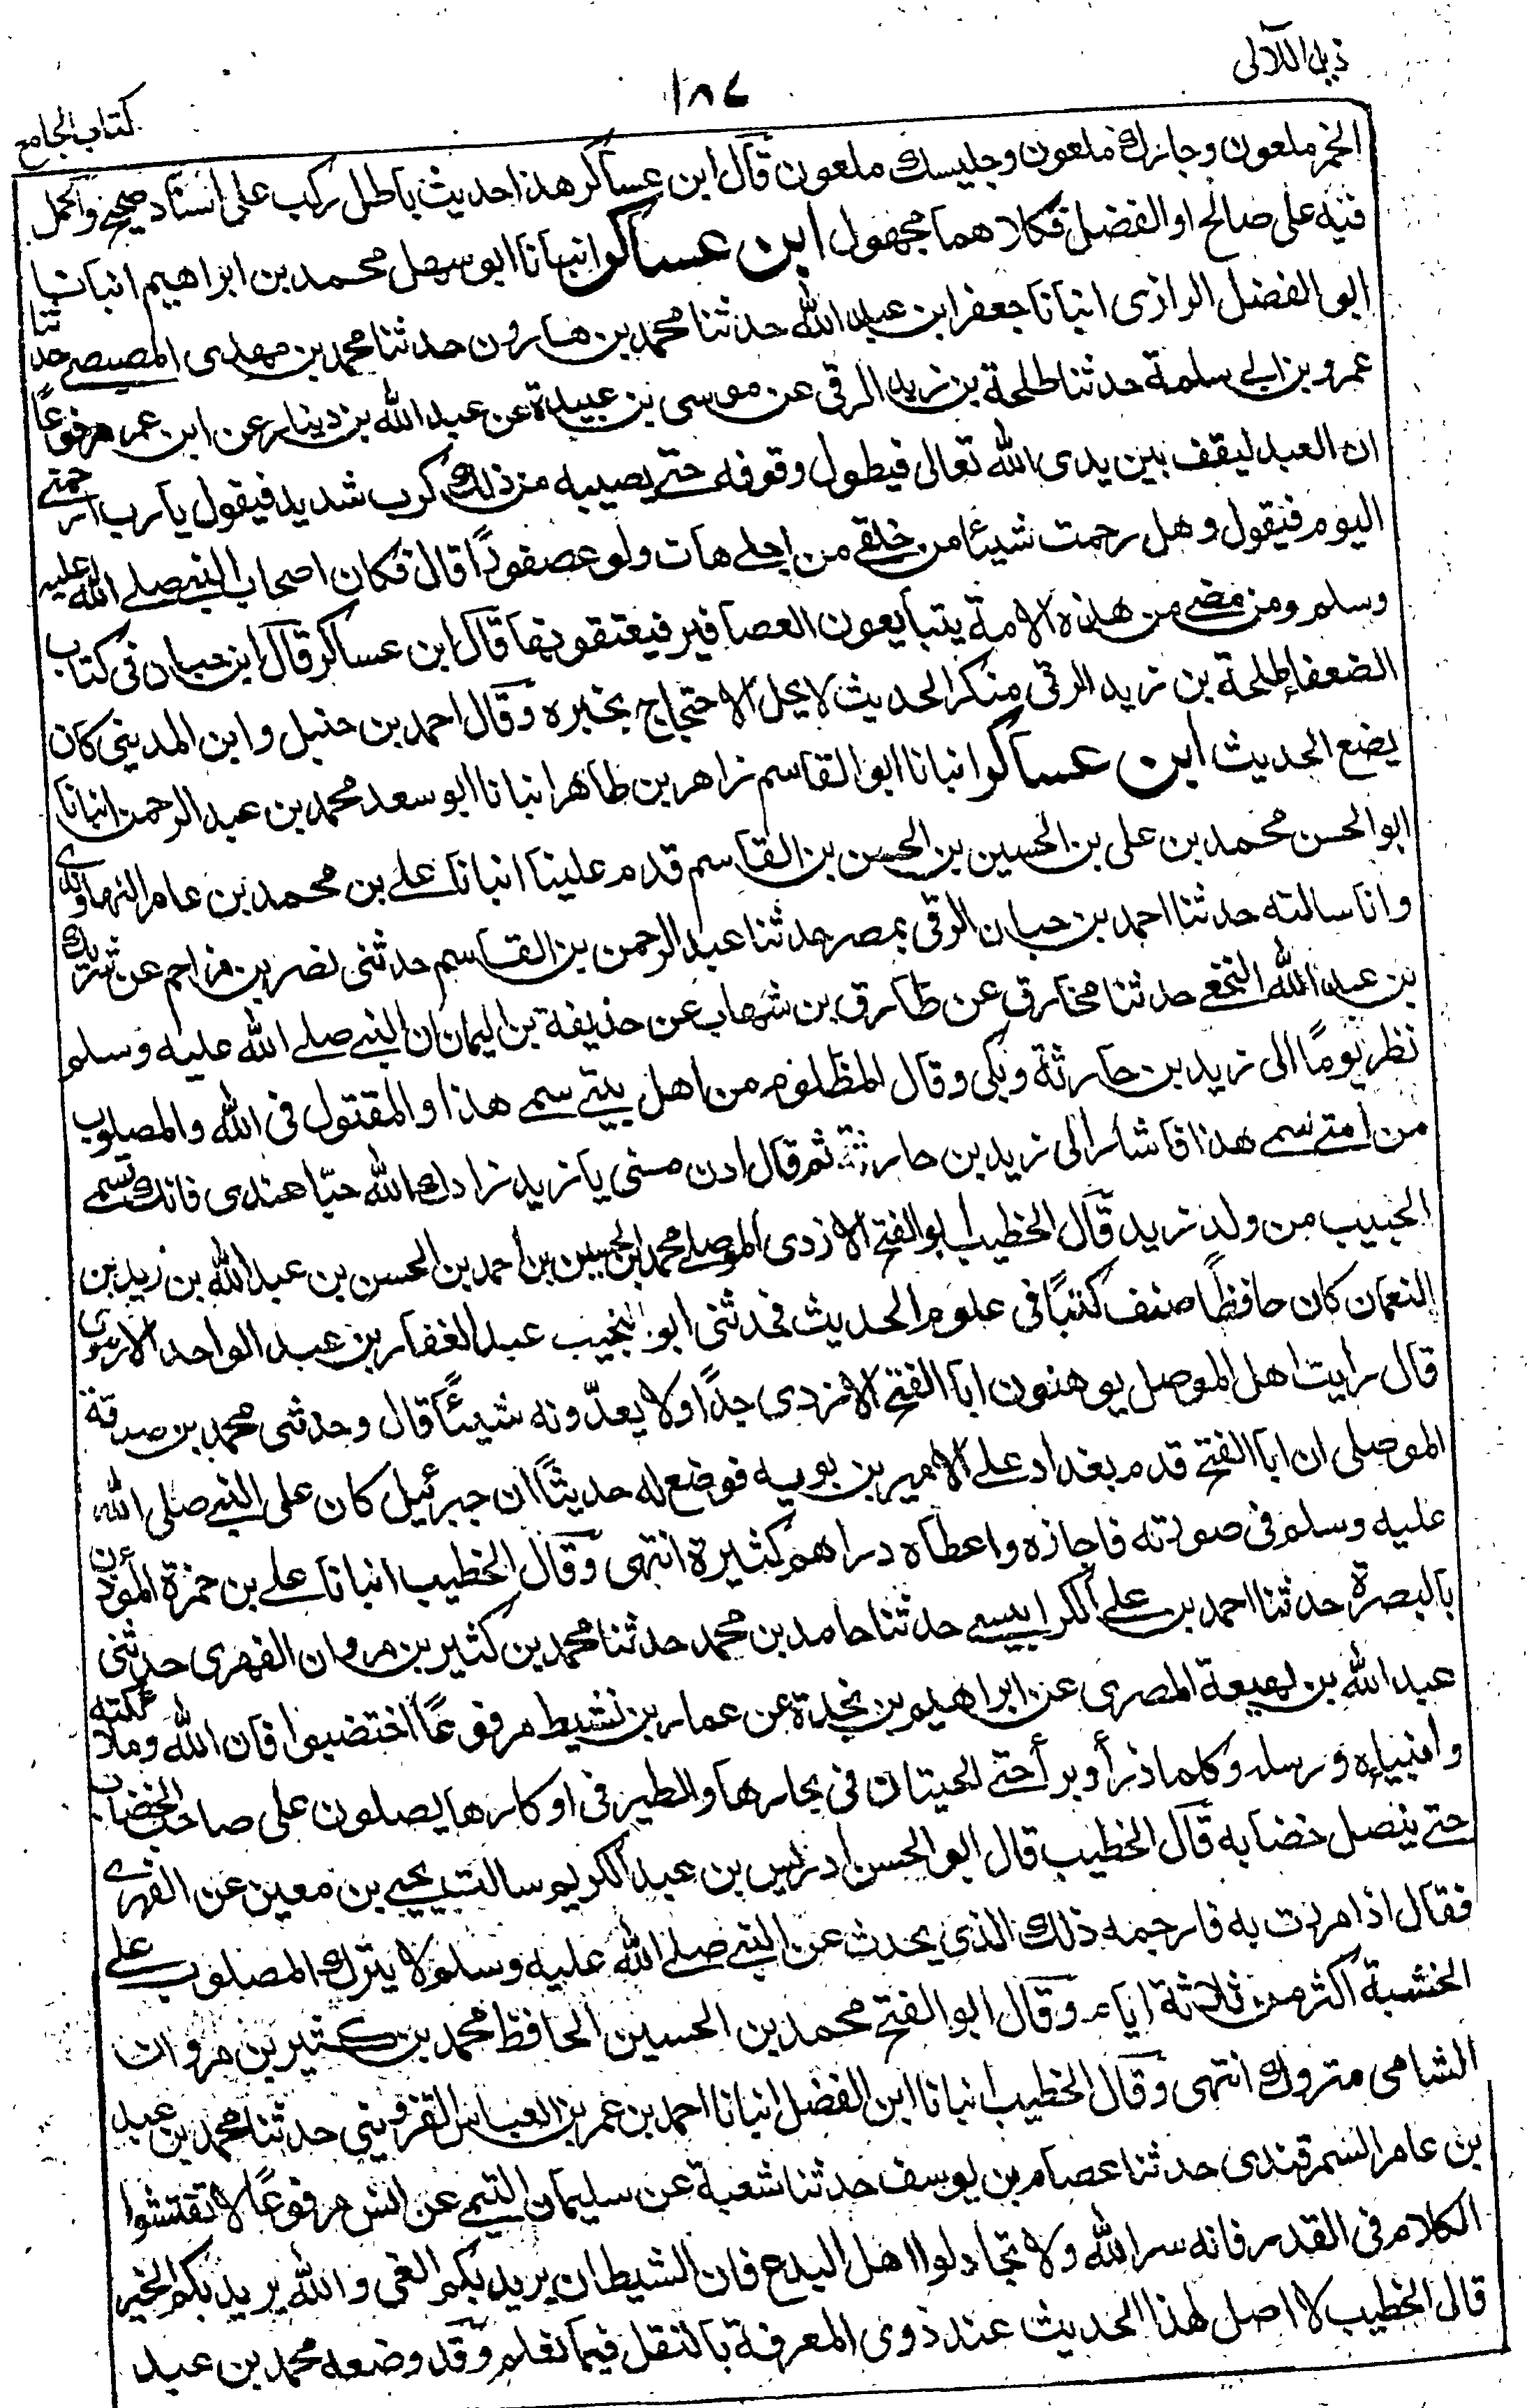 ذيل اللآلى
١٨٧
كتاب الجامع
الخمر ملعون وجارك ملعون وجليسك ملعون قال ابن عساكر هذا حديث باطل ركب على اسناد صحيح والحمل
فيه على صالح او الفضل فكلاهما مجهول ابن عساكر انبانا ابو سهل محمد بن ابراهيم انبانا
ابو الفضل الرازى انبانا جعفر ابن عبد الله حدثنا محمد بن هارون حدثنا محمد بن مهدى المصيصے حدثنا
عمرو بن ابى سلمة حدثنا طلحة بن زيد الرقى عن موسى بن عبيدة عن عبد الله بن دينار عن ابن عمر مرفوعًا
ان العبد ليقف بين يدى الله تعالى فيطول وقوفه حتے يصيبه من ذلك كرب شديد فيقول يا رب ارحمنے
اليوم فيقول وهل رحمت شيئا من خلقے من اجلے هات ولو عصفورًا قال فكان اصحاب النبے صلے الله عليه
وسلم ومن مضے من هذه الامة يتبايعون العصافير فيعتقونها قال ابن عساكر قال ابن حبان فى كتاب
الضعفاء طلحة بن زيد الرقى منكر الحديث لا يحل الاحتجاج بخبره وقال احمد بن حنبل وابن المدينى كان
يضع الحديث ابن عساكر انبانا ابو القاسم زاهر بن طاهر انبانا ابو سعد محمد بن عبد الرحمن انبانا
ابو الحسن محمد بن على بن الحسين بن الحسن بن القاسم قدم علينا انبانا علے بن محمد بن عامر النهاوندى
وانا سالته حدثنا احمد بن حبان الرقى بمصر حدثنا عبد الرحمن بن القاسم حدثنى نصر بن مزاحم عن شريك
بن عبد الله النخعے حدثنا مخارق عن طارق بن شهاب عن حذيفة بن اليمان ان النبے صلے الله عليه وسلم
نظر يومًا الى زيد بن حارثة وبكى وقال المظلوم من اهل بيتے سمے هذا والمقتول فى الله والمصلوب
من امتے سمے هذا فاشار الى زيد بن حارثة ثم قال ادن منى يا زيد زادك الله حبّا عندى فانك سمے
الحبيب من ولد زيد قال الخطيب ابو الفتح الازدى الموصلے محمد بن الحسين بن احمد بن الحسن بن عبد الله بن زيد بن
النعمان كان حافظًا صنف كتبًا فى علوم الحديث فحدثنى ابو النجيب عبد الغفار بن عبد الواحد الارموى
قال رايت اهل الموصل يوهنون ابا الفتح الازدى جدًا ولا يعدّونه شيئًا قال وحدثنى محمد بن صدقة
الموصلى ان ابا الفتح قدم بغداد علے الامير بن بويه فوضع له حديثًا ان جبرئيل كان على النبے صلى الله
عليه وسلم فى صورته فاجازه واعطاه دراهم كثيرة انتهى وقال الخطيب انبانا علے بن حمزة المؤذن
بالبصرة حدثنا احمد بن علے الكرابيسے حدثنا حامد بن محمد حدثنا محمد بن كثير بن مروان الفهرى حدثنى
عبد الله بن لهيعة المصرى عن ابراهيم بن نجدة عن عمار بن نشيط مرفوعًا اختضبوا فان الله وملائكته
وانبياءه ورسله وكلما ذرأ وبرأ حتے الحيتان فى بحارها والطير فى اوكارها يصلون على صاحب الخضاب
حتے ينصل خضابه قال الخطيب قال ابو الحسن ادريس بن عبد الكريم سالت يحيے بن معين عن الفهرے
فقال اذا مررت به فارجمه ذلك الذى يحدث عن النبے صلے الله عليه وسلم لا يترك المصلوب علے
الخشبة اكثر من ثلاثة ايام وقال ابو الفتح محمد بن الحسين الحافظ محمد بن كثير بن مروان
الشامى متروك انتهى وقال الخطيب انبانا ابن الفضل انبانا احمد بن عمر بن العباس القزوينى حدثنا محمد بن عبد
بن عامر السمرقندى حدثنا عصام بن يوسف حدثنا شعبة عن سليمان التيمے عن انس مرفوعًا لا تفتشوا
الكلام فى القدر فانه سر الله ولا تجادلوا اهل البدع فان الشيطان يريد بكم الغى والله يريد بكم الخير
قال الخطيب لا اصل لهذا الحديث عند ذوى المعرفة بالنقل فيما نعلم وقد وضعه محمد بن عبد